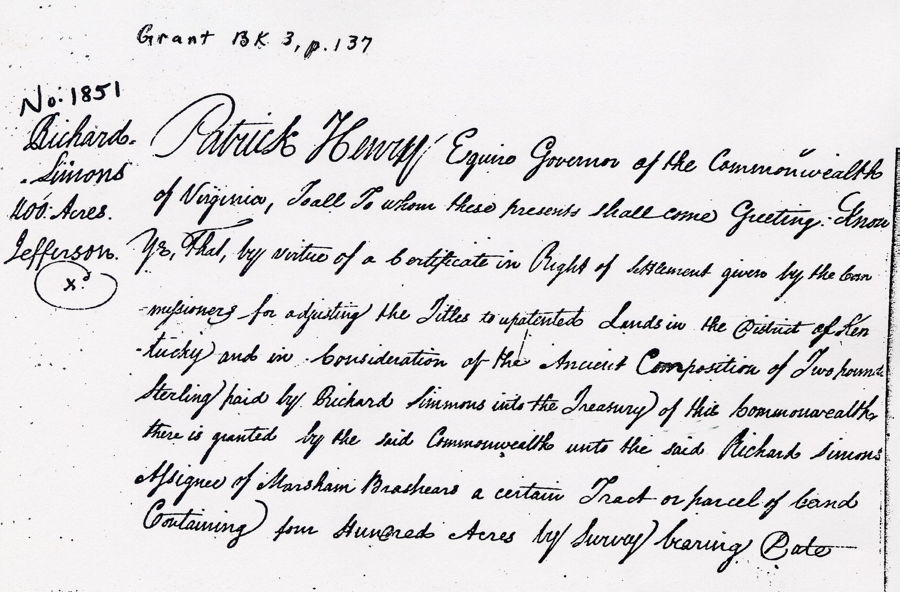 Grant BK 3, p. 137
No. 1851
Richard
Simons
400. Acres.
Jefferson.
x^d
Patrick Henry Equire Governor of the Commonwealth
of Virginia, To all To whom these presents shall come Greeting. Know
Ye, That, by virtue of a Certificate in Right of Settlement given by the Com
-missioners for adjusting the Titles to upatented Lands in the District of Ken
-tucky and in Consideration of the Ancient Composition of Two pounds
Sterling paid by Richard Simmons into the Treasury of this Commonwealth
there is granted by the said Commonwealth unto the said Richard Simons
Assignee of Marsham Brashears a certain Tract or parcel of Land
Containing four Hundred Acres by Survey bearing Date